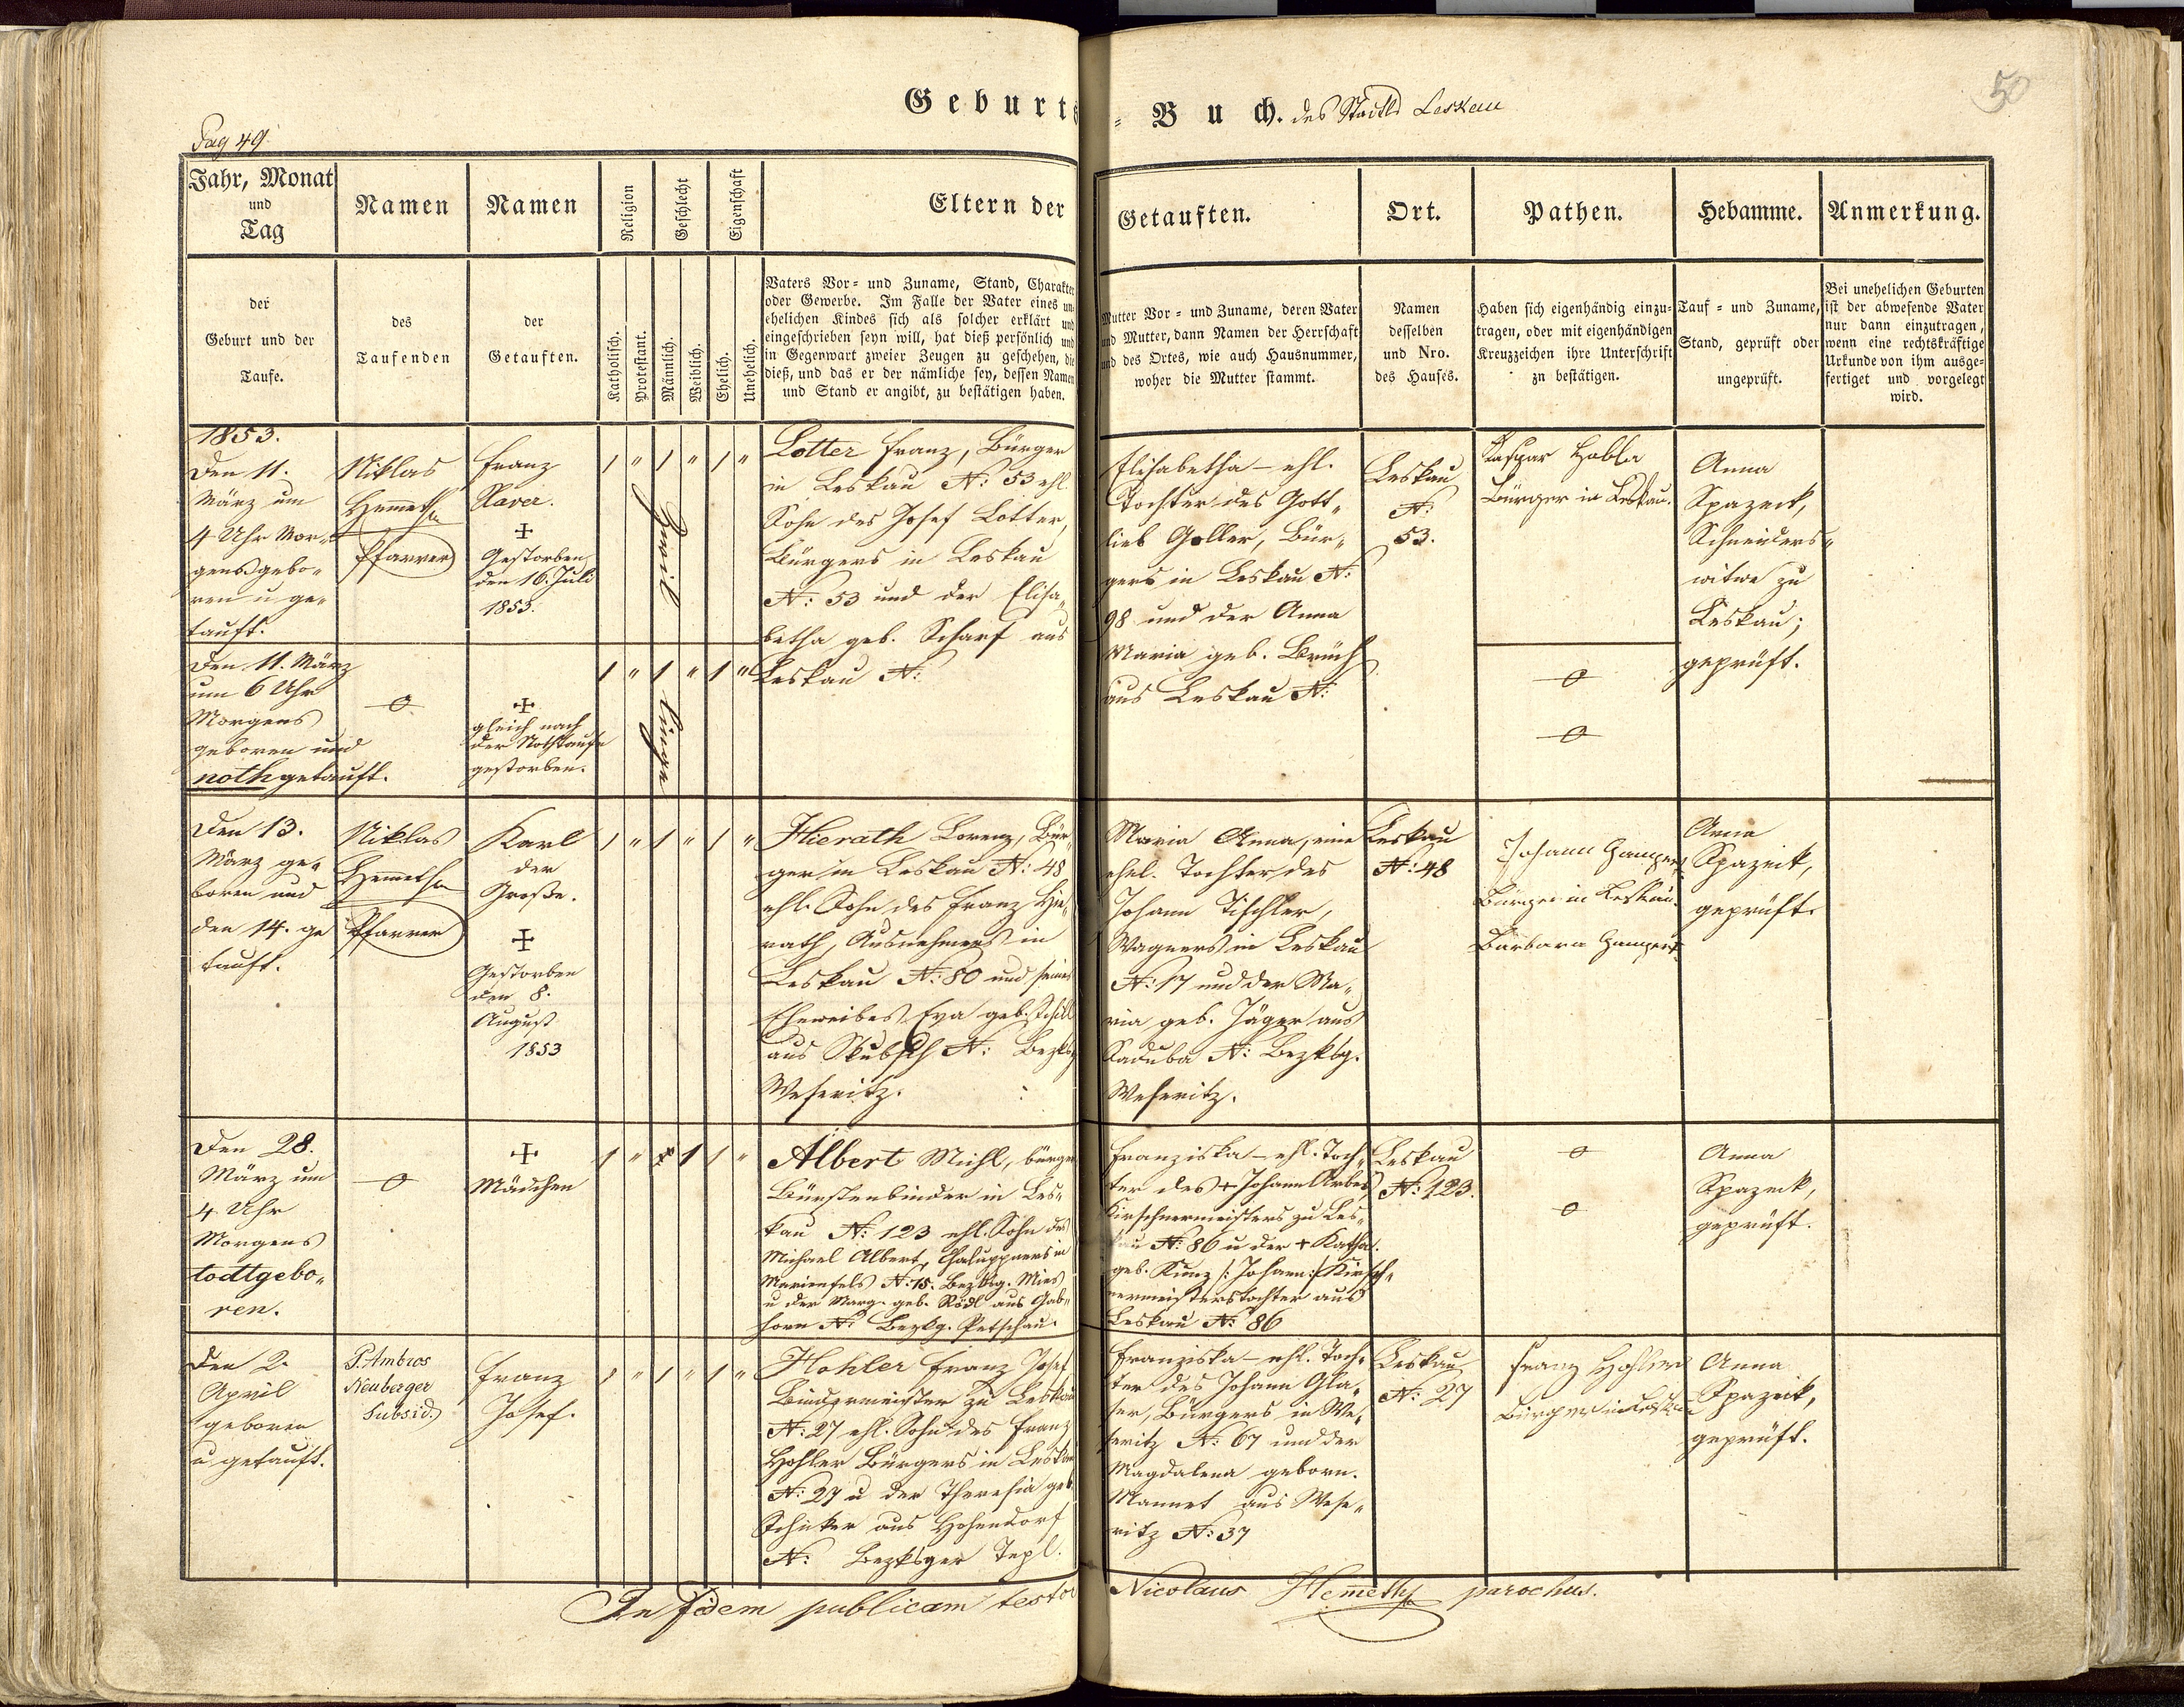 Geburts
= Buch. des Stadtls Leskau
50
Pag 49.
Jahr, Monat
und
Tag
Namen
Namen
Religion
Geschlecht
Eigenschaft
Eltern der
Getauften.
Ort.
Pathen.
Hebamme.
Anmerkung.
der
Geburt und der
Taufe.
des
Taufenden
der
Getauften.
Katholisch.
Protestant.
Männlich.
Weiblich.
Ehelich.
Unehelich.
Vaters Vor- und Zuname, Stand, Charakter
oder Gewerbe. Im Falle der Vater eines un-
ehelichen Kindes sich als solcher erklärt und
eingeschrieben seyn will, hat dieß persönlich und
in Gegenwart zweier Zeugen zu geschehen, die
dieß, und das er der nämliche sey, dessen Namen
und Stand er angibt, zu bestätigen haben.
Mutter Vor- und Zuname, deren Vater
und Mutter, dann Namen der Herrschaft
und des Ortes, wie auch Hausnummer,
woher die Mutter stammt.
Namen
desselben
und Nro.
des Hauses.
Haben sich eigenhändig einzu-
tragen, oder mit eigenhändigen
Kreuzzeichen ihre Unterschrift
zn bestätigen.
Tauf- und Zuname,
Stand, geprüft oder
ungeprüft.
Bei unehelichen Geburten
ist der abwesende Vater
nur dann einzutragen,
wenn eine rechtskräftige
Urkunde von ihm ausge-
fertiget und vorgelegt
wird.
1853.
Den 11.
März um
4 Uhr Mor-
gens gebo-
ren u ge-
tauft.
Niklas
Hemmeth
Pfarrer
Franz
Xaver.
+
Gestorben
den 16. Juli
1853.
1 " 1 " 1 "
Lotter Franz, Bürger
in Leskau N: 53 ehl.
Sohn des Josef Lotter,
Bürgers in Leskau
N: 53 und der Elisa-
betha geb. Scharf aus
Leskau N:
Elisabetha - ehl.
Tochter des Gott-
lieb Goller, Bür-
gers in Leskau N:
98 und der Anna
Maria geb.
aus Leskau N:
Leskau
N:
53.
Kaspar
Bürger in Leskau.
Anna
Spazeck,
Schneiders-
witwe zu
Leskau;
geprüft.
Den 11. März
um 6 Uhr
Morgens
geboren und
noth getauft.
+
gleich nach
der Nothtaufe
gestorben.
1 " 1 " 1 "
Den 13.
März ge-
boren und
den 14. ge
tauft.
Niklas
Hemmeth
Pfarrer
Karl
der
Große.
+
Gestorben
den 8.
August
1853
1 " 1 " 1 "
Hierath Lorenz, Bür-
ger in Leskau N: 48
ehl. Sohn des Franz Hie-
rath, Ausnehmers in
Leskau N: 80 und seines
Eheweibes Eva geb.
aus N: Bezksg
Weseritz.
Maria Anna, eine
ehel. Tochter des
Johann Tischler,
Wagners in Leskau
N: 17 und der Ma-
ria geb. Jäger aus
Saduba N: Bezksg.
Weseritz.
Leskau
N: 48
Johann
Bürger in Leskau.
Barbara
Anna
Spazeck,
geprüft.
Den 28.
März um
4 Uhr
Morgens
todtgebo-
ren.
+
Mädchen
1 " 1 1 "
Albert Michl, bürger
Bürstenbinder in Les-
kau N: 123 ehl. Sohn des
Michael Albert, Chaluppners in
Marienfels N: 15. Bezksg. Mies
u der Marg. geb. Rödl aus Gab-
horn N: Bezkg. Petschau.
Franziska - ehl. Toch-
ter des + Johann Arbes,
Kirschnermeisters zu Les-
kau N: 86 u der + Katha.
geb. Kunz /: Johann :/ Kirsch-
nermeisterstochter aus
Leskau N: 86
Leskau
N: 123.
Anna
Spazeck,
geprüft.
Den 2.
April
geboren
u getauft.
P. Ambros
Neuberger
Subsid.
Franz
Josef.
1 " 1 " 1 "
Hohler Franz Josef
Bindermeister zu Leskau
N: 27 ehl. Sohn des Franz
Hohler Bürgers in Leskau
N: 27 u der Theresia geb.
Schicker aus Hohendorf
N: Bezksger Tepl.
Franziska - ehl. Toch-
ter des Johann Gla-
ser, Bürgers in We-
seritz N: 67 und der
Magdalena geborn.
Mannet aus Wese-
ritz N: 37
Leskau
N: 27
Franz Hohler
Bürger in Leskau
Anna
Spazeck,
geprüft.
In fidem publicam testor
Nicolaus Hemmeth parochus.